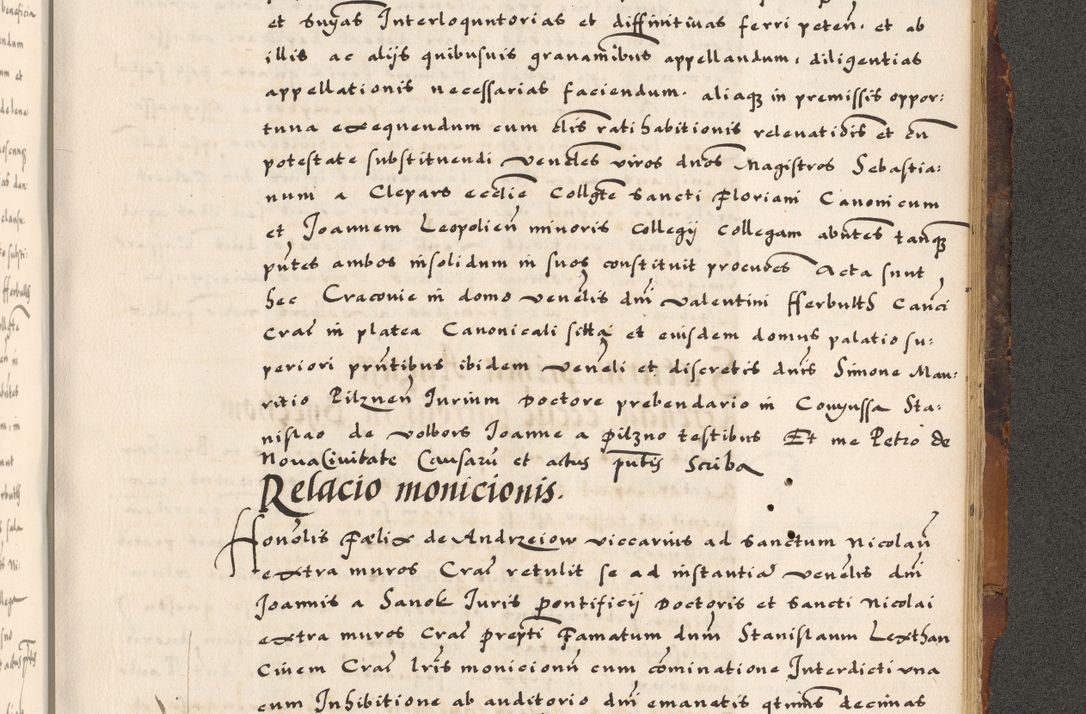 et suas Interloquutorias et diffinitivas ferri peteñ. et ab
illis ac alijs quibusuis gravamĩbus appellandum, diligentias
appellationis necessarias faciendum. aliaqȝ in premissis oppor:
tuna exequendum cum clĩs ratihabitionis relevatiõis et cũ
potestate substituendi venĉles viros dnõs Magistros Sebastia:
num a Clepars ecclĩe Collgtẽ Sancti Floriani Canonicum
et Joannem Leopolieñ minoris Collegij Collegam abñtes tanqȝ
pñtes ambos insolidum in suos constituit procũdes Acta sunt
hec Cracovie in domo Venẽlis dñi Valentini fferbulth Canĉi
Craĉ in platea Canonicali sitta et eiusdem domus palatio su:
periori pñtibus ibidem Venẽli et discretis dñis Simone Mau:
ritio Pilzneñ Jurium Doctore prebendario in Sta:
nislao de volbors Joanne a pilzno testibus Et me Petro de
Nova Civitate Causarũ et actus pñtis Scriba
Relacio monicionis.
Honõlis Fælix de Andrzeiow viccarius ad Sanctum Nicolaũ
extra muros Craĉ retulit se ad instantiã venẽlis dñi
Joannis a Sanok Juris pontificij Doctoris et Sancti Nicolai
extra muros Craĉ prepti Famatum dũm Stanislaum Lexthan
Civem Craĉ lrĩs monicioñ cum cõminatione Interdicti una
cum Inhibitione ab auditorio dñi emanatis decimas